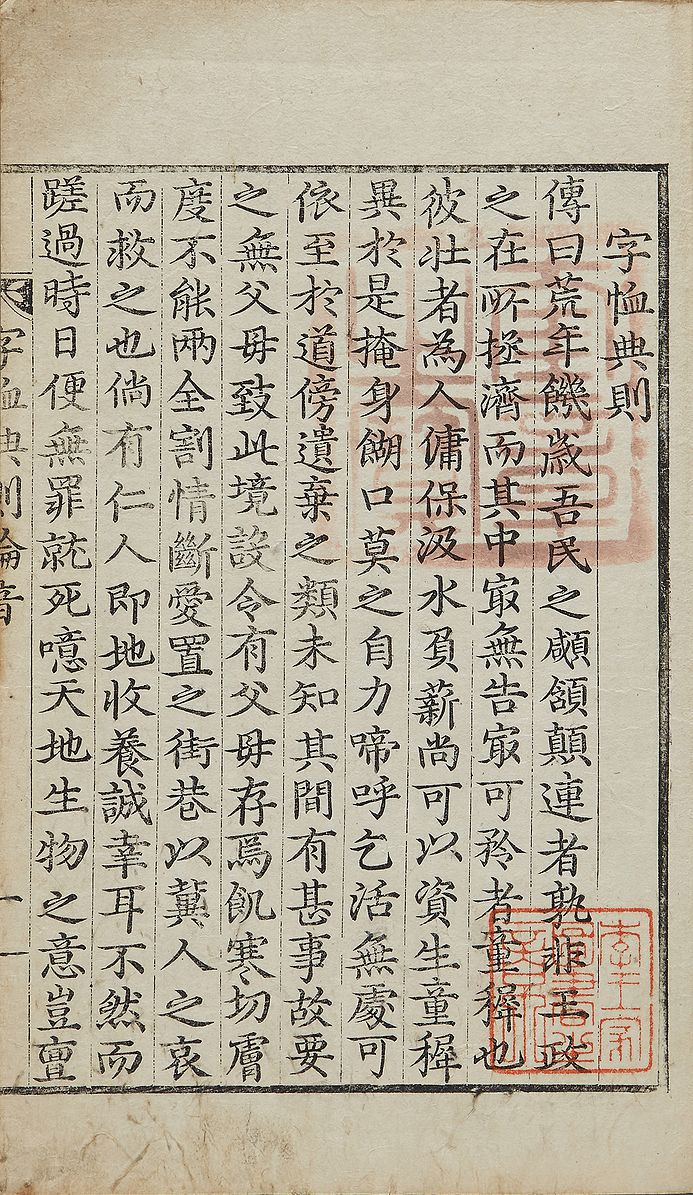 字恤典則
傳曰荒年饑歲吾民之顑頷顛連者孰非王政
之在所拯濟而其中㝡無告㝡可矜者童穉也
彼壯者為人傭保汲水負薪尚可以資生童穉
異於是掩身餬口莫之自力啼呼乞活無處可
依至於道傍遺棄之類未知其間有甚事故要
之無父母致此境設令有父母存焉飢寒切膚
度不能兩全割情斷愛置之街巷以冀人之哀
而救之也倘有仁人即地收養誠幸耳不然而
蹉過時日便無罪就死噫天地生物之意豈亶
字恤典則綸音 一
李王家圖書之章